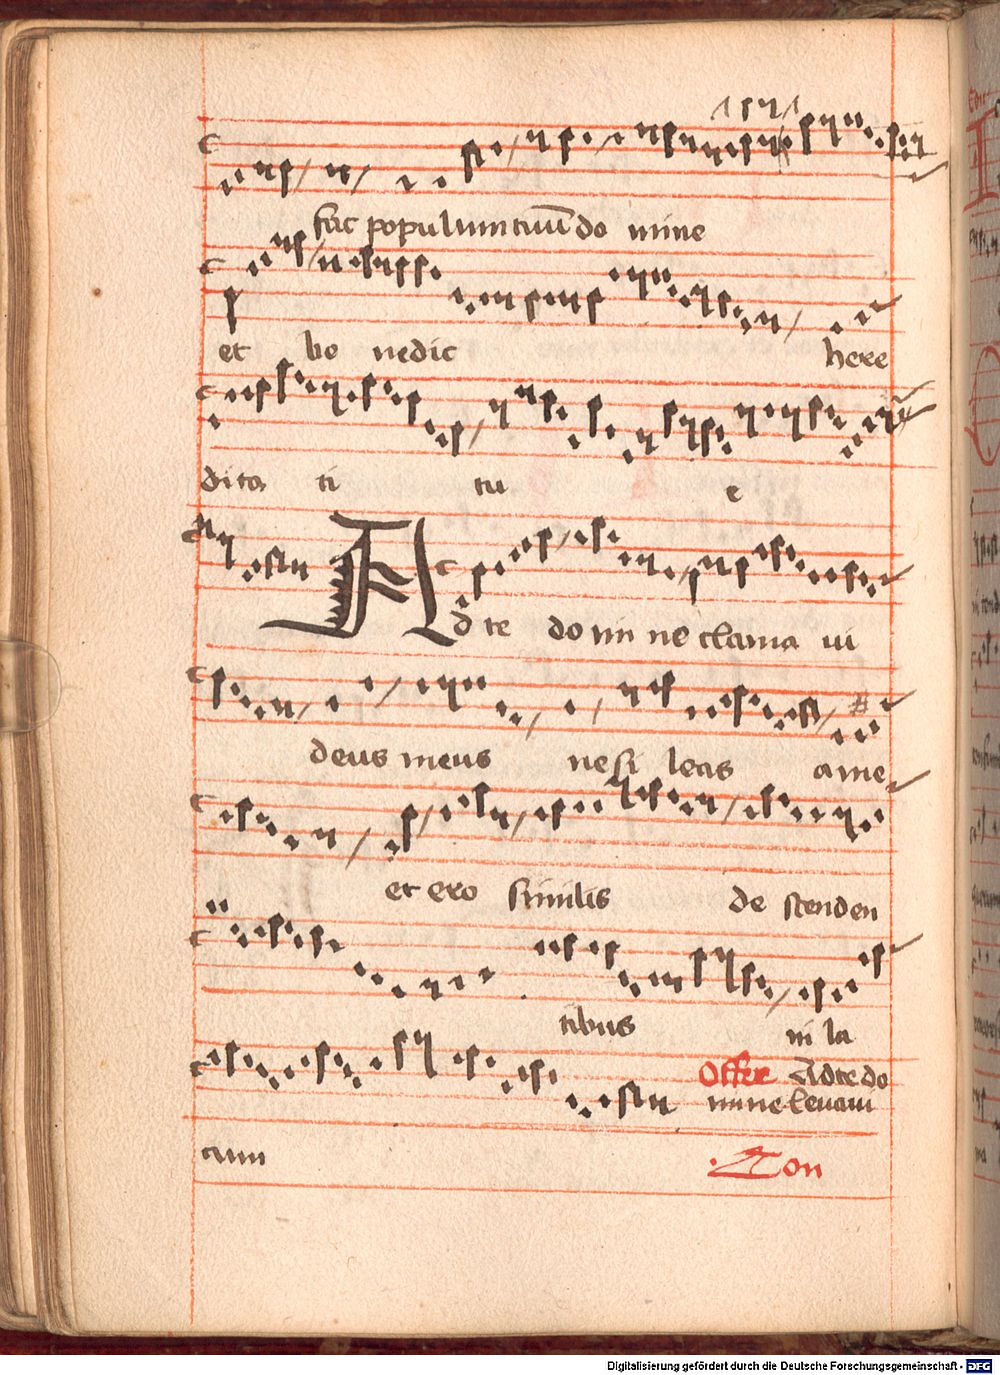 fac populum tuū do mine
et be nedic here
dita ti tu e
Ad te do mi ne clama ui
deus meus ne si leas a me
et ero similis de scenden
tibus in la
Offer Ad te do
mine leuaui
cum
Digitalisierung gefördert durch die Deutsche Forschungsgemeinschaft - DFG